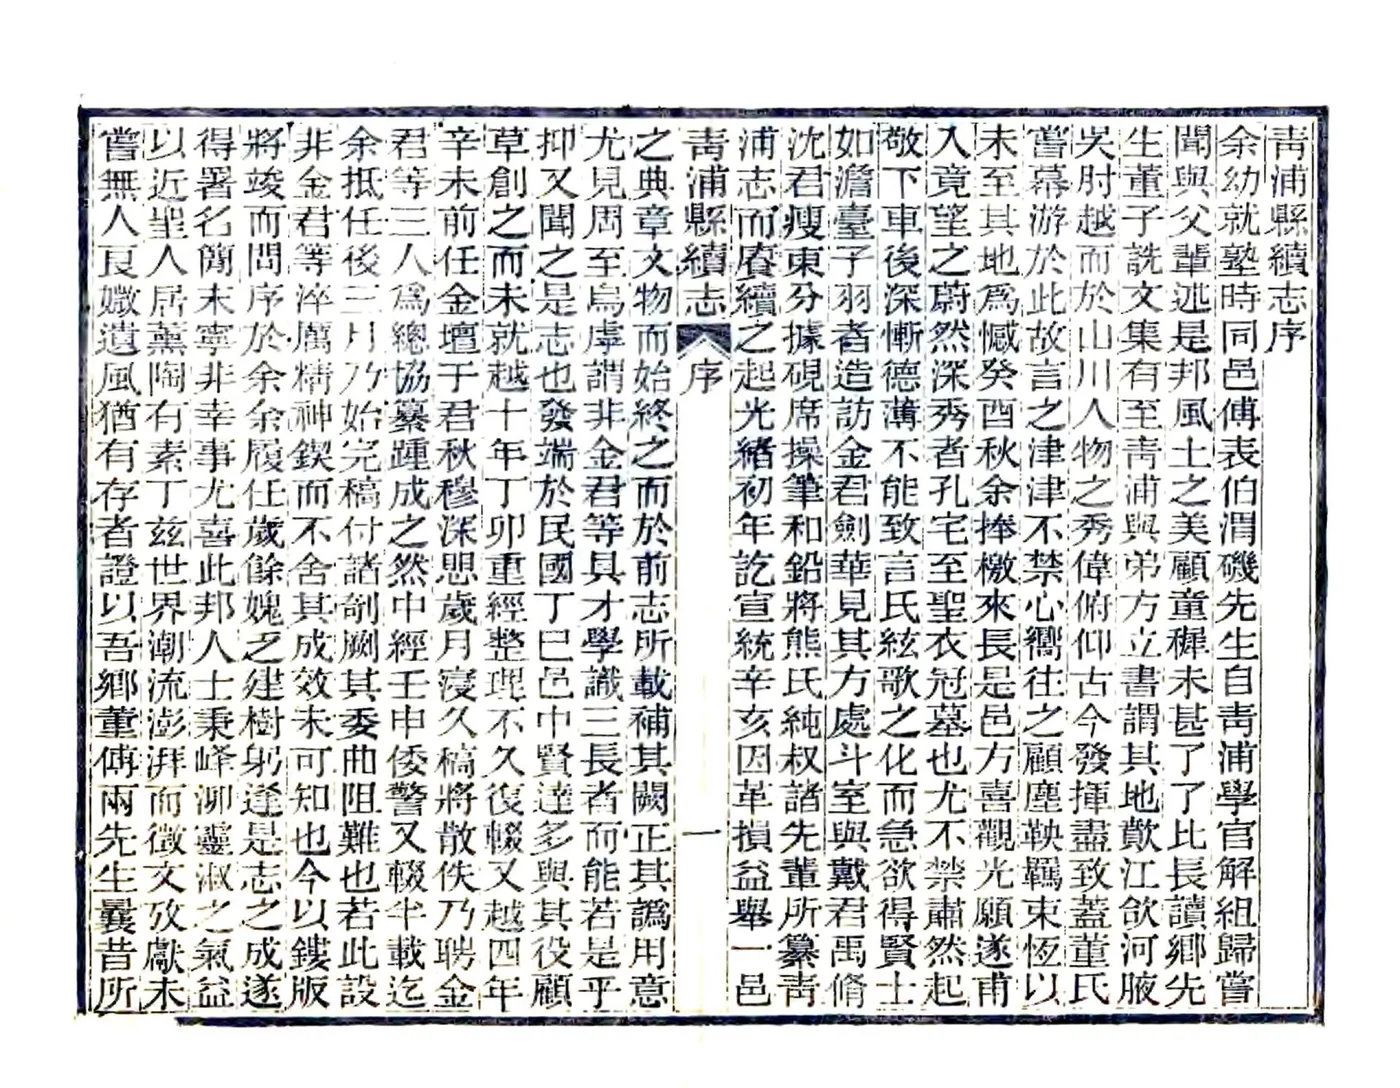 青浦縣續志序
余幼就塾時同邑傅表伯渭磯先生自青浦學官解組歸嘗
聞與父輩述是邦風土之美顧童穉未甚了了比長讀鄉先
生董子詵文集有至青浦與弟方立書謂其地歕江欱河腋
吳肘越而於山川人物之秀偉俯仰古今發揮盡致蓋董氏
嘗幕游於此故言之津津不禁心嚮往之顧塵鞅羈束恆以
未至其地爲憾癸酉秋余捧檄來長是邑方喜觀光願遂甫
入竟望之蔚然深秀者孔宅至聖衣冠墓也尤不禁肅然起
敬下車後深慚德薄不能致言氏絃歌之化而急欲得賢士
如澹臺子羽者造訪金君劍華見其方處斗室與戴君禹脩
沈君瘦東分據硯席操筆和鉛將熊氏純叔諸先輩所纂青
浦志而賡續之起光緒初年訖宣統辛亥因革損益舉一邑
青浦縣續志 序 一
之典章文物而始終之而於前志所載補其闕正其譌用意
尤見周至烏虖謂非金君等具才學識三長者而能若是乎
抑又聞之是志也發端於民國丁巳邑中賢達多與其役顧
草創之而未就越十年丁卯重經整理不久復輟又越四年
辛未前任金壇于君秋穆深思歲月寖久稿將散佚乃聘金
君等三人爲總協纂踵成之然中經壬申倭警又輟半載迄
余抵任後三月乃始完稿付諸剞劂其委曲阻難也若此設
非金君等淬厲精神鍥而不舍其成效未可知也今以鏤版
將竣而問序於余余履任歲餘媿之建樹躬逢是志之成遂
得署名簡末寧非幸事尤喜此邦人士秉峰泖靈淑之氣益
以近聖人居薰陶有素丁兹世界潮流澎湃而徵文攷獻未
嘗無人良媺遺風猶有存者證以吾鄉董傅兩先生曩昔所